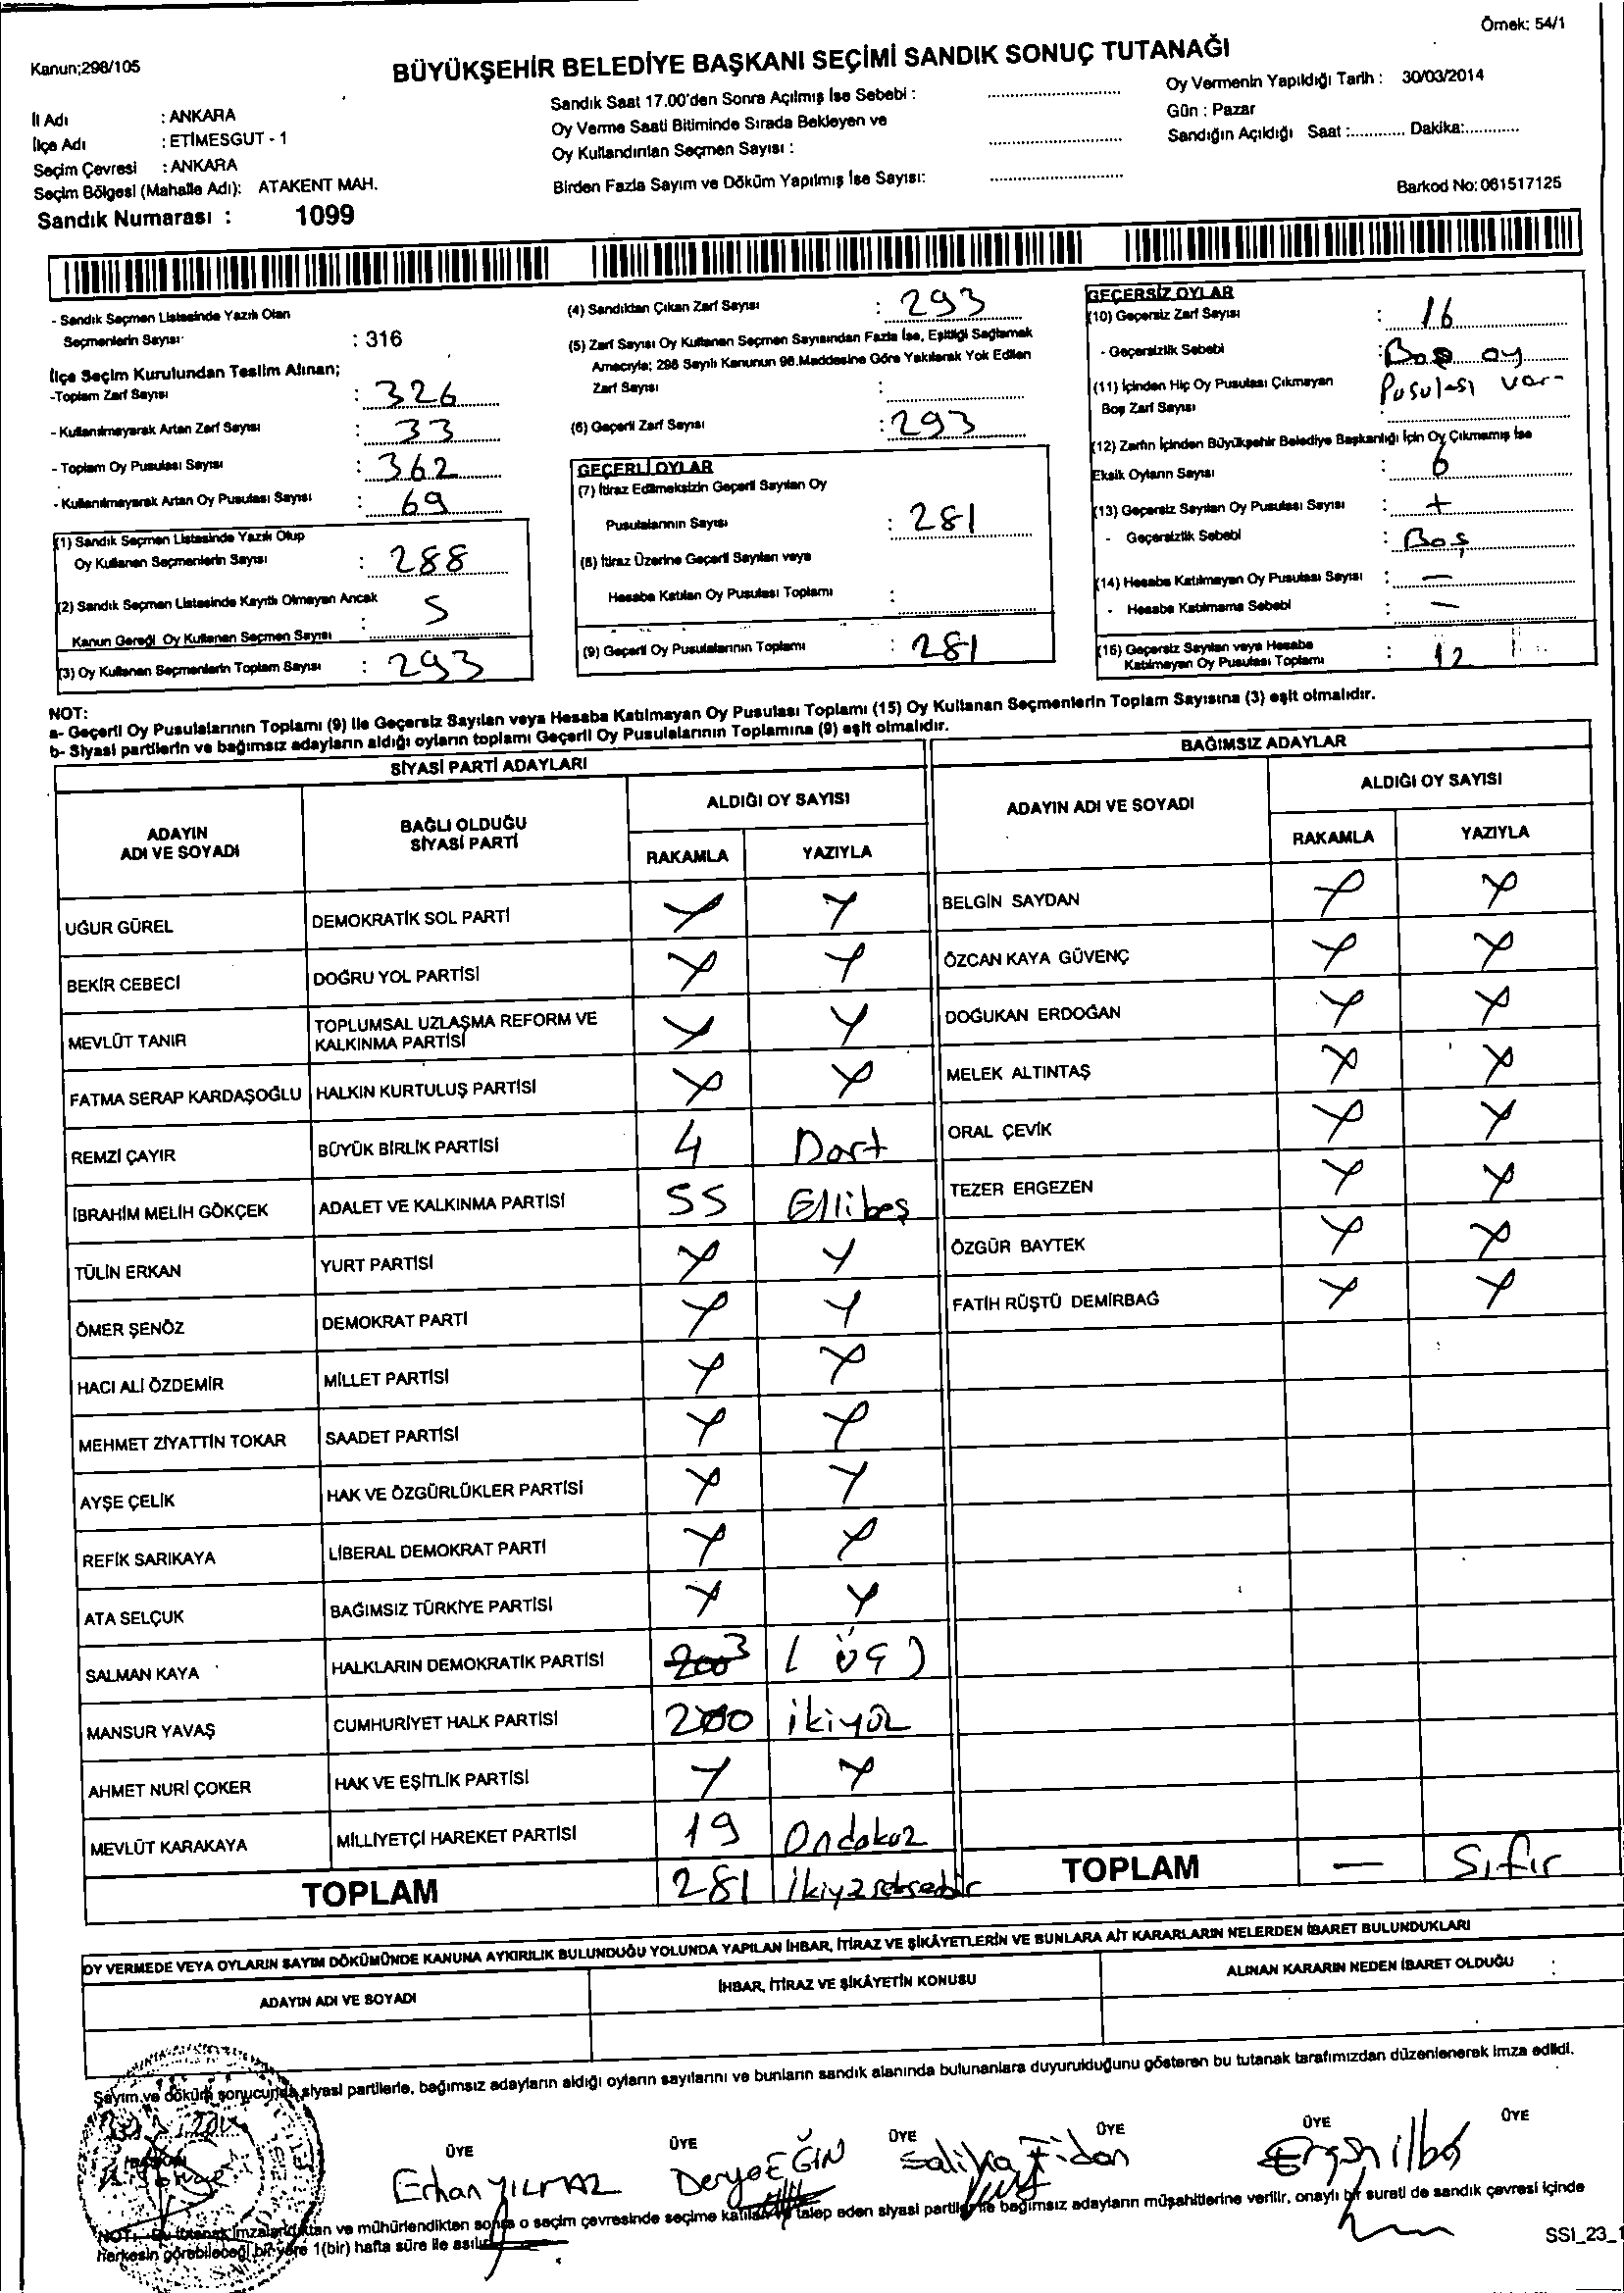 Örnek: 54/1
Kanun;298/105
BÜYÜKŞEHİR BELEDİYE BAŞKANI SEÇİMİ SANDIK SONUÇ TUTANAĞI
İl Adı : ANKARA
İlçe Adı : ETİMESGUT - 1
Seçim Çevresi : ANKARA
Seçim Bölgesi (Mahalle Adı): ATAKENT MAH.
Sandık Numarası : 1099
Sandık Saat 17.00'den Sonra Açılmış İse Sebebi :
Oy Verme Saati Bitiminde Sırada Bekleyen ve
Oy Kullandırılan Seçmen Sayısı :
Birden Fazla Sayım ve Döküm Yapılmış İse Sayısı:
Oy Vermenin Yapıldığı Tarih : 30/03/2014
Gün : Pazar
Sandığın Açıldığı Saat :............ Dakika:............
Barkod No: 061517125
- Sandık Seçmen Listesinde Yazılı Olan
Seçmenlerin Sayısı : 316
İlçe Seçim Kurulundan Teslim Alınan;
-Toplam Zarf Sayısı : 326
- Kullanılmayarak Artan Zarf Sayısı : 33
- Toplam Oy Pusulası Sayısı : 362
- Kullanılmayarak Artan Oy Pusulası Sayısı : 69
(1) Sandık Seçmen Listesinde Yazılı Olup
Oy Kullanan Seçmenlerin Sayısı : 288
(2) Sandık Seçmen Listesinde Kayıtlı Olmayan Ancak
Kanun Gereği Oy Kullanan Seçmen Sayısı : 5
(3) Oy Kullanan Seçmenlerin Toplam Sayısı : 293
(4) Sandıktan Çıkan Zarf Sayısı : 293
(5) Zarf Sayısı Oy Kullanan Seçmen Sayısından Fazla İse, Eşitliği Sağlamak
Amacıyla; 298 Sayılı Kanunun 98.Maddesine Göre Yakılarak Yok Edilen
Zarf Sayısı :
(6) Geçerli Zarf Sayısı : 293
GEÇERLİ OYLAR
(7) İtiraz Edilmeksizin Geçerli Sayılan Oy
Pusulalarının Sayısı : 281
(8) İtiraz Üzerine Geçerli Sayılan veya
Hesaba Katılan Oy Pusulası Toplamı :
(9) Geçerli Oy Pusulalarının Toplamı : 281
GEÇERSİZ OYLAR
(10) Geçersiz Zarf Sayısı : 16
- Geçersizlik Sebebi : Boş oy
Pusulası var-
(11) İçinden Hiç Oy Pusulası Çıkmayan
Boş Zarf Sayısı :
(12) Zarfın İçinden Büyükşehir Belediye Başkanlığı İçin Oy Çıkmamış İse
Eksik Oyların Sayısı : 6
(13) Geçersiz Sayılan Oy Pusulası Sayısı : +
- Geçersizlik Sebebi : Boş
(14) Hesaba Katılmayan Oy Pusulası Sayısı : —
- Hesaba Katılmama Sebebi : —
(15) Geçersiz Sayılan veya Hesaba
Katılmayan Oy Pusulası Toplamı : 12
NOT:
a- Geçerli Oy Pusulalarının Toplamı (9) ile Geçersiz Sayılan veya Hesaba Katılmayan Oy Pusulası Toplamı (15) Oy Kullanan Seçmenlerin Toplam Sayısına (3) eşit olmalıdır.
b- Siyasi partilerin ve bağımsız adayların aldığı oyların toplamı Geçerli Oy Pusulalarının Toplamına (9) eşit olmalıdır.
SİYASİ PARTİ ADAYLARI
ADAYIN ADI VE SOYADI BAĞLI OLDUĞU SİYASİ PARTİ ALDIĞI OY SAYISI
RAKAMLA YAZIYLA
UĞUR GÜREL DEMOKRATİK SOL PARTİ
BEKİR CEBECİ DOĞRU YOL PARTİSİ
MEVLÜT TANIR TOPLUMSAL UZLAŞMA REFORM VE KALKINMA PARTİSİ
FATMA SERAP KARDAŞOĞLU HALKIN KURTULUŞ PARTİSİ
REMZİ ÇAYIR BÜYÜK BİRLİK PARTİSİ 4 Dört
İBRAHİM MELİH GÖKÇEK ADALET VE KALKINMA PARTİSİ 55 Ellibeş
TÜLİN ERKAN YURT PARTİSİ
ÖMER ŞENÖZ DEMOKRAT PARTİ
HACI ALİ ÖZDEMİR MİLLET PARTİSİ
MEHMET ZİYATTİN TOKAR SAADET PARTİSİ
AYŞE ÇELİK HAK VE ÖZGÜRLÜKLER PARTİSİ
REFİK SARIKAYA LİBERAL DEMOKRAT PARTİ
ATA SELÇUK BAĞIMSIZ TÜRKİYE PARTİSİ
SALMAN KAYA HALKLARIN DEMOKRATİK PARTİSİ 200 3 ( üç )
MANSUR YAVAŞ CUMHURİYET HALK PARTİSİ 200 ikiyüz
AHMET NURİ ÇOKER HAK VE EŞİTLİK PARTİSİ
MEVLÜT KARAKAYA MİLLİYETÇİ HAREKET PARTİSİ 19 Ondokuz
TOPLAM 281
BAĞIMSIZ ADAYLAR
ADAYIN ADI VE SOYADI ALDIĞI OY SAYISI
RAKAMLA YAZIYLA
BELGİN SAYDAN
ÖZCAN KAYA GÜVENÇ
DOĞUKAN ERDOĞAN
MELEK ALTINTAŞ
ORAL ÇEVİK
TEZER ERGEZEN
ÖZGÜR BAYTEK
FATİH RÜŞTÜ DEMİRBAĞ
TOPLAM — Sıfır
OY VERMEDE VEYA OYLARIN SAYIM DÖKÜMÜNDE KANUNA AYKIRILIK BULUNDUĞU YOLUNDA YAPILAN İHBAR, İTİRAZ VE ŞİKÂYETLERİN VE BUNLARA AİT KARARLARIN NELERDEN İBARET BULUNDUKLARI
ADAYIN ADI VE SOYADI İHBAR, İTİRAZ VE ŞİKÂYETİN KONUSU ALINAN KARARIN NEDEN İBARET OLDUĞU
Sayım ve döküm sonucunda siyasi partilerle, bağımsız adayların aldığı oyların sayılarını ve bunların sandık alanında bulunanlara duyurulduğunu gösteren bu tutanak tarafımızdan düzenlenerek imza edildi.
BAŞKAN ÜYE ÜYE ÜYE ÜYE ÜYE ÜYE
Erhan YILMAZ Derya EĞİN Saliha Fidan
NOT: Bu tutanak imzalandıktan ve mühürlendikten sonra o seçim çevresinde seçime katılan ve talep eden siyasi partilerle bağımsız adayların müşahitlerine verilir, onaylı bir sureti de sandık çevresi içinde
herkesin görebileceği bir yere 1(bir) hafta süre ile asılır.
SSI_23_1